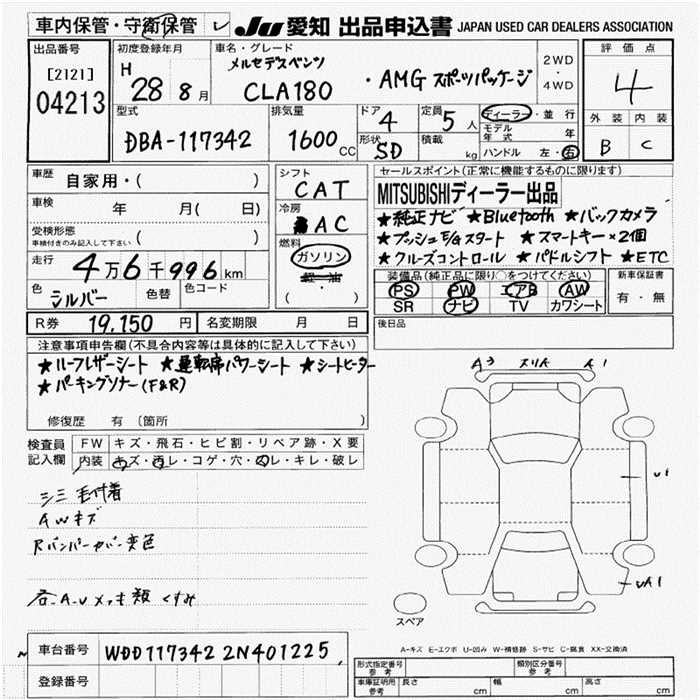 車内保管・守衛保管 レ JU 愛知 出品申込書 JAPAN USED CAR DEALERS ASSOCIATION
出品番号 初度登録年月 車名・グレード 評価点
[2121] 04213
H 28 8月
メルセデスベンツ
CLA180 ・AMG スポーツパッケージ
2WD
・
4WD
4
外装 内装
B C
型式 排気量 ドア 定員 ディーラー・並行
DBA-117342 1600cc 4 5人
モデル年式 年
形状 積載
SD kg
ハンドル 左・右
車歴 自家用・( )
シフト CAT
セールスポイント(正常に機能するものに限ります)
MITSUBISHIディーラー出品
★純正ナビ ★Bluetooth ★バックカメラ
★プッシュE/Gスタート ★スマートキー×2個
★クルーズコントロール ★パドルシフト ★ETC
車検 年 月( 日)
冷房 AC
受検形態 ( )
車検付きのみ記入して下さい
燃料 ガソリン
軽・油
( )
走行 4万6千996km
色 シルバー 色替 色コード
装備品(純正品に限り○をつけてください) 新車保証書
PS PW エアB AW 有・無
SR ナビ TV カワシート
R券 19,150円 名変期限 月 日
後日品
注意事項申告欄(不具合内容等は具体的に記入して下さい)
★ハーフレザーシート ★運転席パワーシート ★シートヒーター
★パーキングソナー(F&R)
修復歴 有 〔箇所 〕
検査員記入欄 FW キズ・飛石・ヒビ割・リペア跡・X要
内装 キズ・汚レ・コゲ・穴・スレ・キレ・破レ
A3 スリK A1
シミ 毛付着
AWキズ
Rバンパーカバー変色
U1
UA1
スペア
A-キズ E-エクボ U-凹み W-補修跡 S-サビ C-腐食 XX-交換済
車台番号 WDD1173422N401225
登録番号
形式指定番号 参考 類別区分番号 参考
車庫証明用 参考 長さ cm 幅 cm 高さ cm